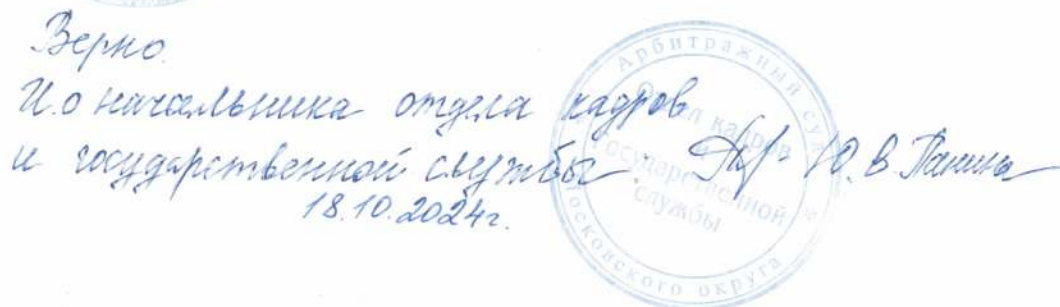 Верно.
И.о начальника отдела кадров
и государственной службы Ю.В. Панина
18.10.2024г.
Арбитражный суд
Московского округа
Отдел кадров
и
государственной
службы